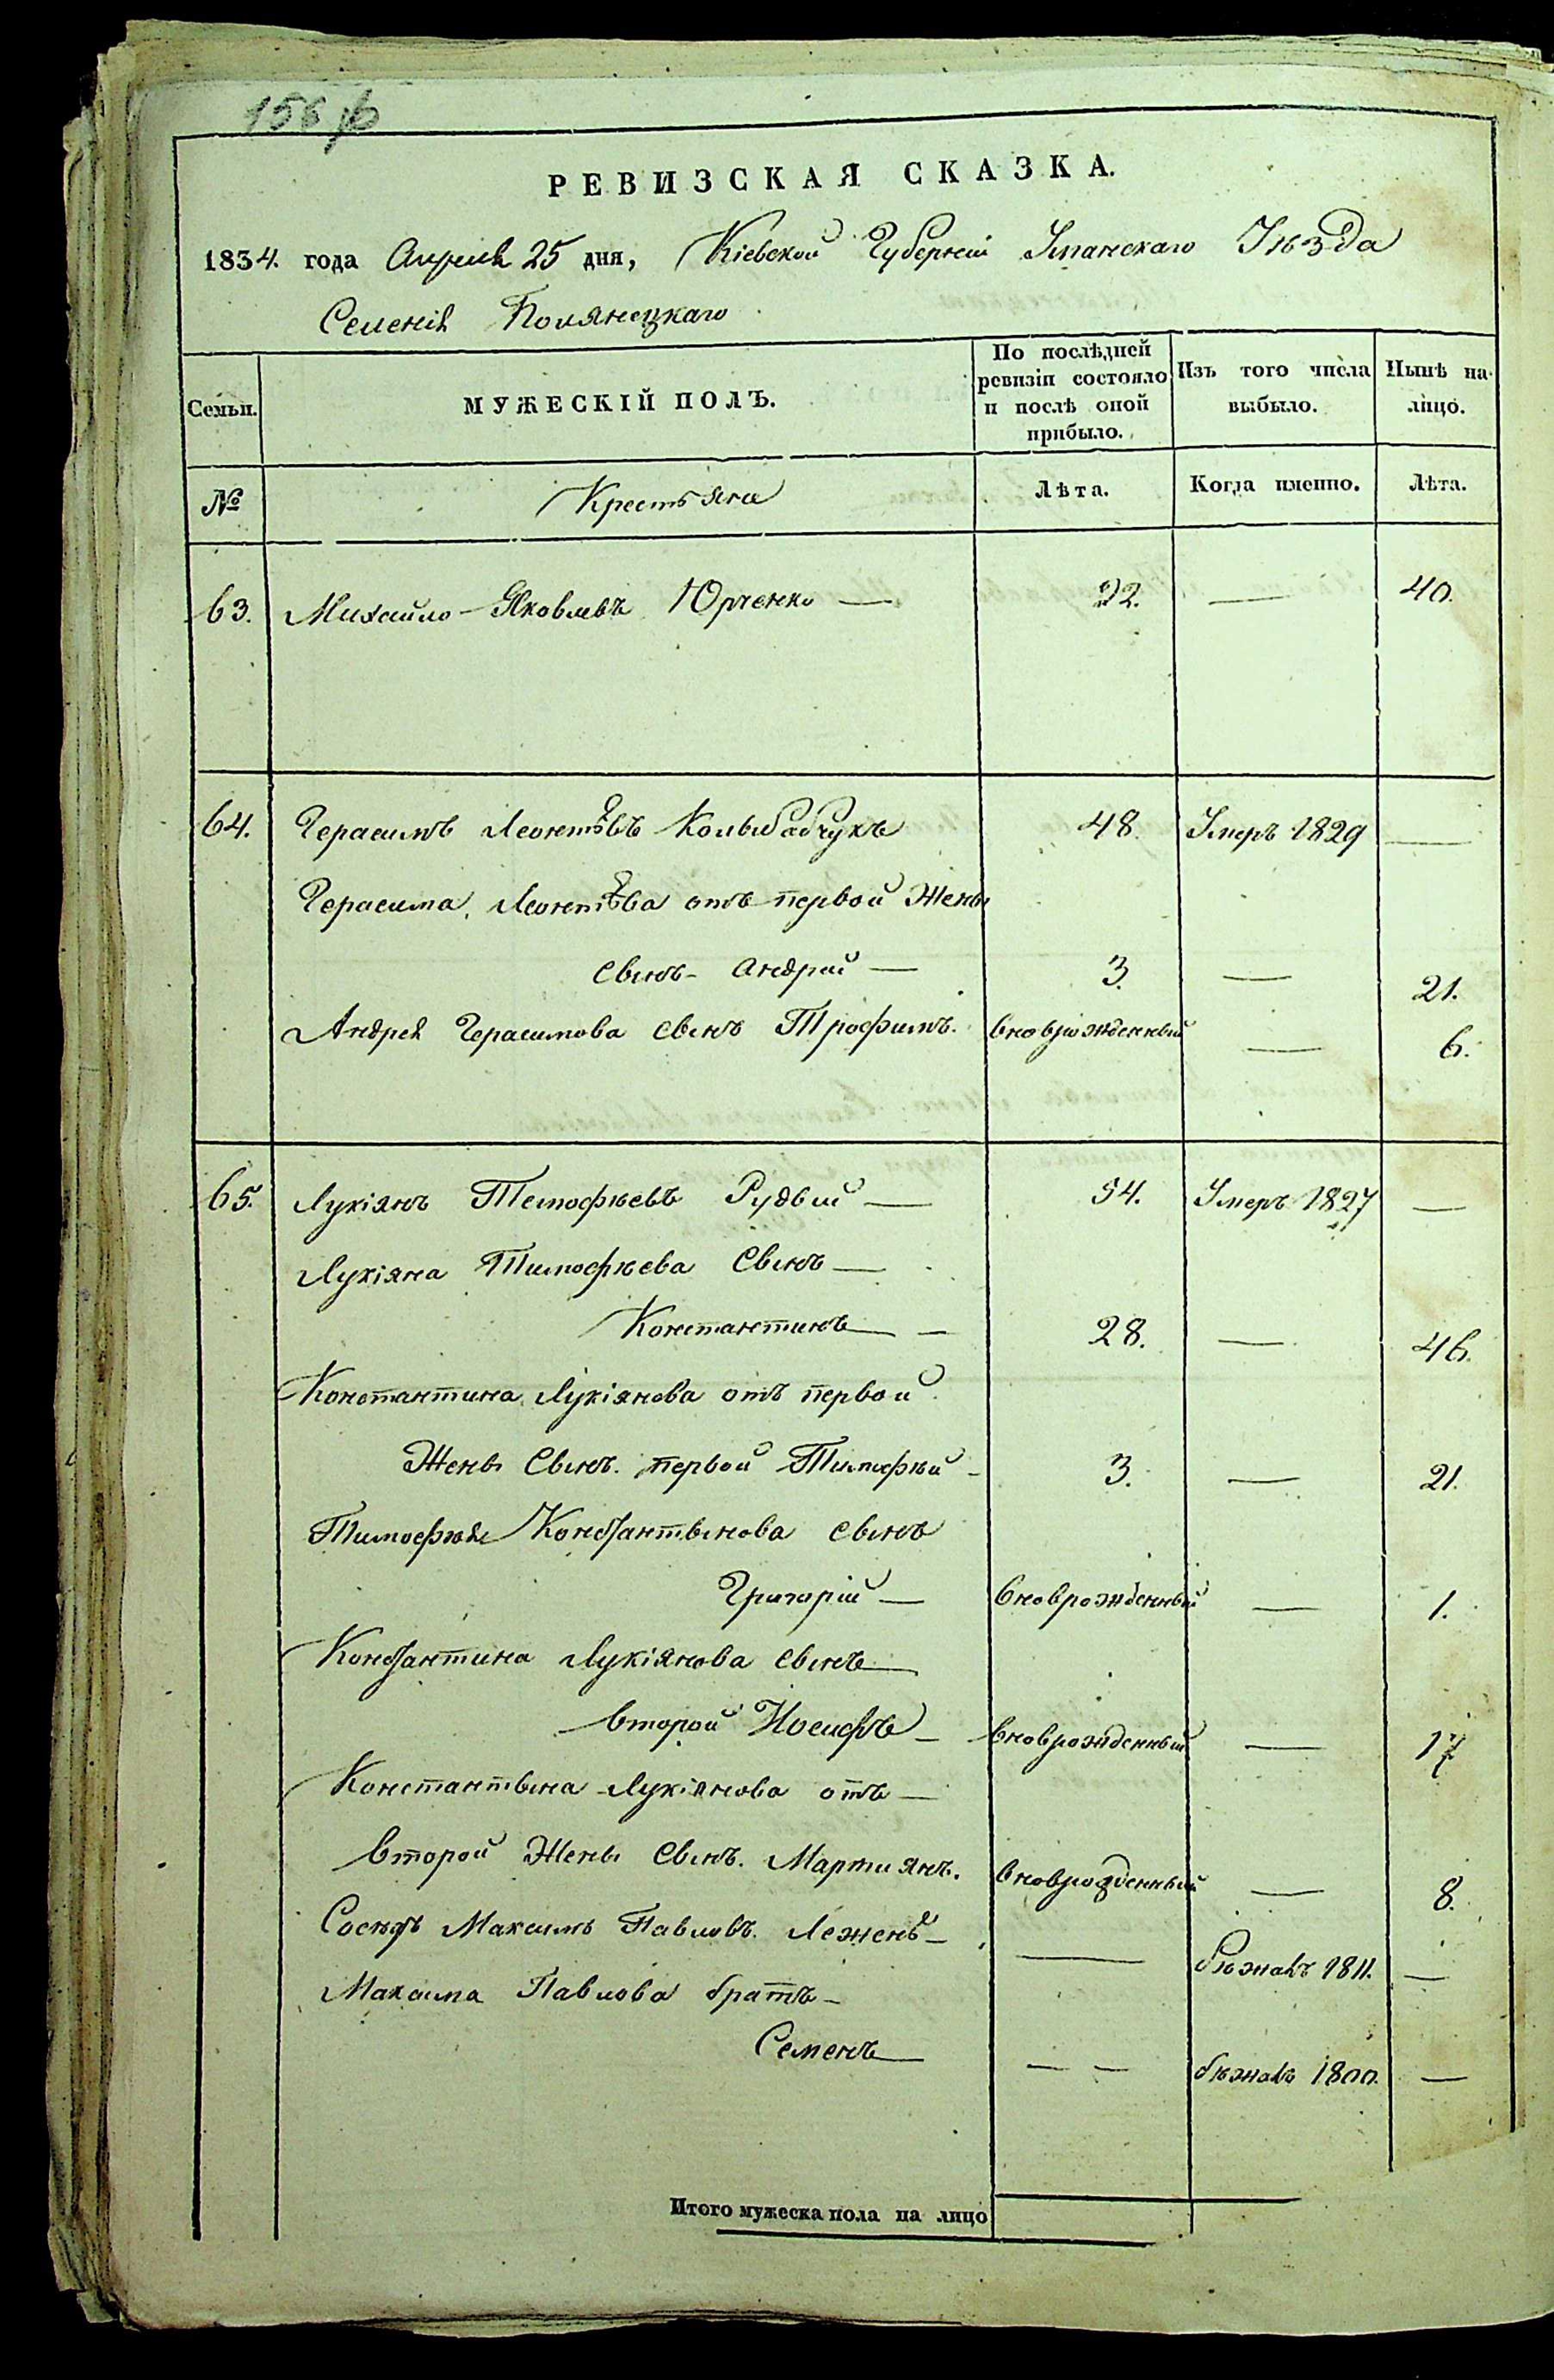 156 об
РЕВИЗСКАЯ СКАЗКА.
1834. года Апреля 25 дня, Кіевской Губерніи Уманскаго Уѣзда
Селенія Полянецкаго
Семьи. МУЖЕСКІЙ ПОЛЪ. По послѣдней ревизіи состояло и послѣ оной прибыло. Изъ того числа выбыло. Нынѣ на-лицо.
№ Крестьяне Лѣта. Когда именно. Лѣта.
63. Михайло Яковлевъ Юрченко — 22. — 40.
64. Герасимъ Леонтьевъ Колыбабчукъ 48. Умеръ 1829 —
Герасима Леонтьева отъ первой Жены
сынъ Андрей — 3. — 21.
Андрея Герасимова сынъ Трофимъ. вноврожденный — 6.
65. Лукіянъ Темофѣевъ Рудый — 54. Умеръ 1827 —
Лукіяна Тимофѣева Сынъ —
Константинъ — 28. — 46.
Константина Лукіянова отъ первой
Жены Сынъ первой Тимофѣй - 3. — 21.
Тимофѣя Константынова сынъ
Григорій — вноврожденный — 1.
Константина Лукіянова сынъ —
второй Иосифъ — вноврожденный — 17
Константына Лукіянова отъ —
Второй Жены Сынъ. Мартиянъ. вноврожденный — 8.
Сосѣдъ Максимъ Павловъ Лежень — — бѣжалъ 1811. —
Максима Павлова братъ —
Семенъ — — — бѣжалъ 1800. —
Итого мужеска пола на лицо